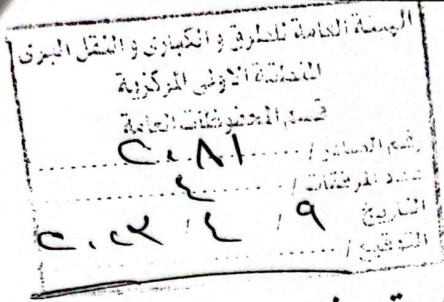 الهيئة العامة للطرق و الكبارى و النقل البرى
المنطقة الاولى المركزية
قسم المحفوظات العامة
رقم الصادر / ٢٠٨١
عدد المرفقات / ٤
التاريخ ٩ / ٤ /
التوقيع /